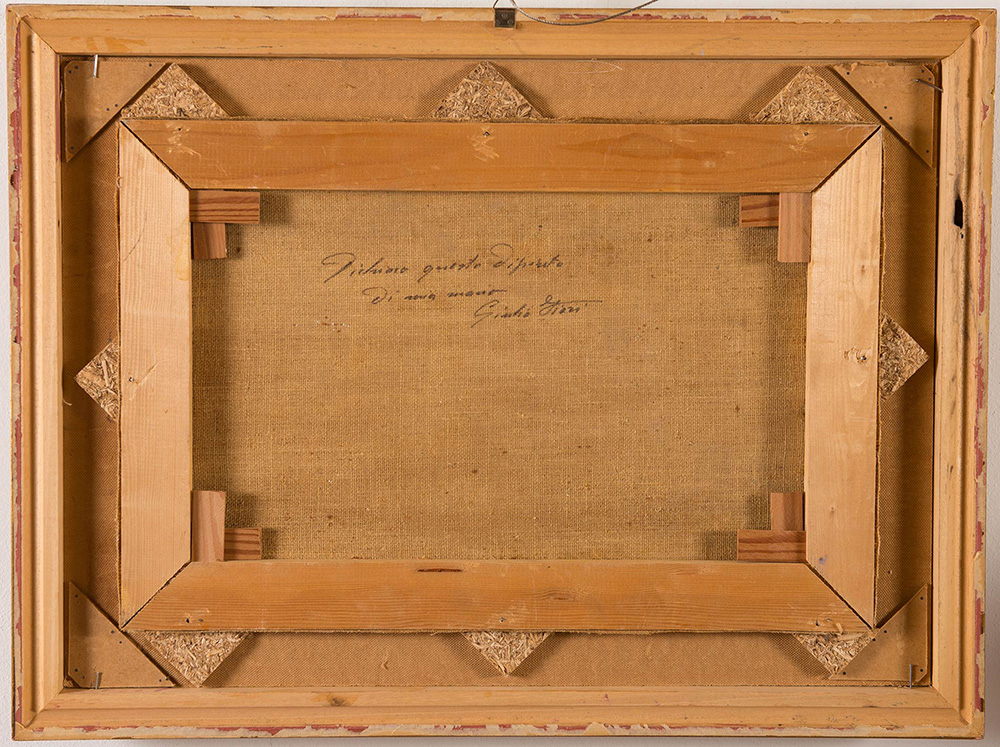 Dichiaro questo Dipinto
Di mia mano
Giulio